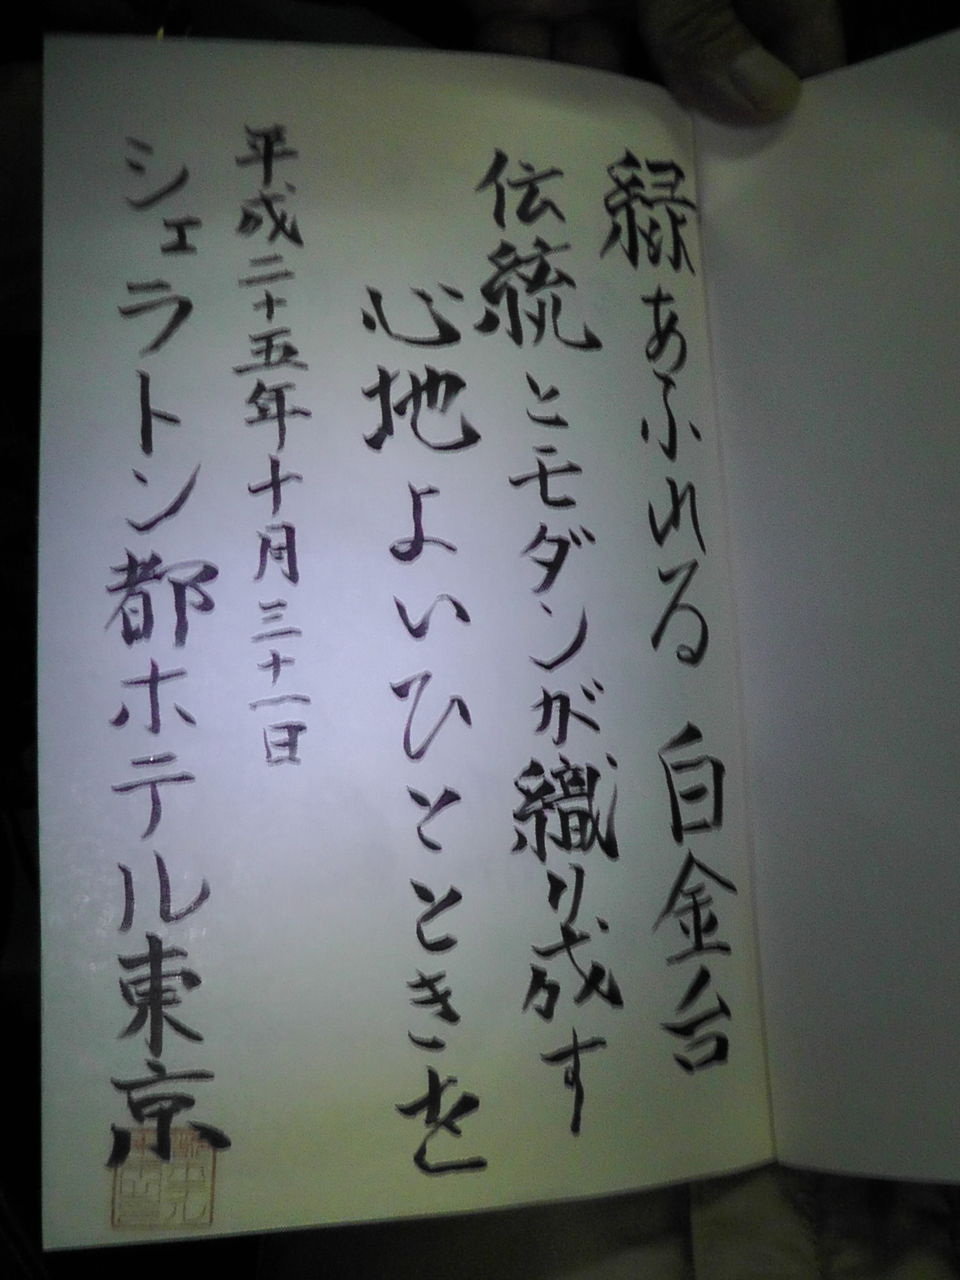 緑あふれる 白金台
伝統とモダンが織り成す
心地よいひとときを
平成二十五年十月三十一日
シェラトン都ホテル東京